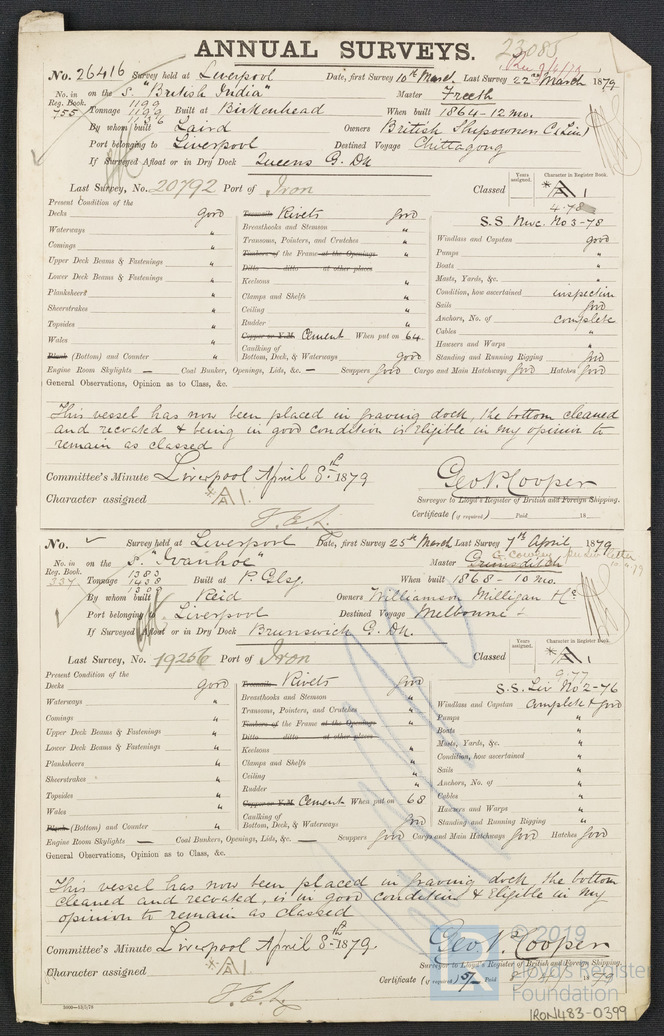 23085
ANNUAL SURVEYS.
No. 26416 Survey held at Liverpool Date, first Survey 10th March Last Survey 22nd March 1879
No. in Reg. Book. 755 on the S. "British India" Master Freeth
Tonnage 1199 1199 1136 Built at Birkenhead When built 1864 - 12 mo.
By whom built Laird Owners British Shipowners C. Lim
Port belonging to Liverpool Destined Voyage Chittagong
If Surveyed Afloat or in Dry Dock Queens G. Dk
Last Survey, No. 20792 Port of Iron Classed Years assigned. Character in Register Book. A 1
4.78
S.S. Nwc. No 3-78
Present Condition of the
Decks good Treenails Rivets good
Waterways " Breasthooks and Stemson " Windlass and Capstan good
Comings " Transoms, Pointers, and Crutches " Pumps "
Upper Deck Beams & Fastenings " Timbers of the Frame at the Openings " Boats "
Lower Deck Beams & Fastenings " Ditto ditto at other places " Masts, Yards, &c. "
Planksheers " Keelsons " Condition, how ascertained inspection
Sheerstrakes " Clamps and Shelfs " Sails good
Topsides " Ceiling " Anchors, No. of complete
Wales " Rudder " Cables "
Copper or Y.M. Cement When put on 64 Hawsers and Warps "
Blank (Bottom) and Counter " Caulking of Bottom, Deck, & Waterways good Standing and Running Rigging good
Engine Room Skylights — Coal Bunkers, Openings, Lids, &c. — Scuppers good Cargo and Main Hatchways good Hatches good
General Observations, Opinion as to Class, &c.
This vessel has now been placed in graving dock, the bottom cleaned
and recoated & being in good condition is Eligible in my opinion to
remain as classed
Committee's Minute Liverpool April 8th 1879 Geo. P. Cooper
Surveyor to Lloyd's Register of British and Foreign Shipping.
Character assigned A 1. Certificate (if required) Paid 18
No. Survey held at Liverpool Date, first Survey 25th March Last Survey 7th April 1879
No. in Reg. Book. 337 on the S. "Ivanhoe" Master
Tonnage 1383 1408 Built at P. Glsg. When built 1868 - 10 mo.
By whom built Reid Owners Williamson Milligan & Co
Port belonging to Liverpool Destined Voyage Melbourne
If Surveyed Afloat or in Dry Dock Brunswick G. Dk.
Last Survey, No. 19256 Port of Iron Classed Years assigned. Character in Register Book. A 1
9.77
S.S. Liv No 2-76
Present Condition of the
Decks good Treenails Rivets good
Waterways " Breasthooks and Stemson " Windlass and Capstan complete & good
Comings " Transoms, Pointers, and Crutches " Pumps "
Upper Deck Beams & Fastenings " Timbers of the Frame at the Openings " Boats "
Lower Deck Beams & Fastenings " Ditto ditto at other places " Masts, Yards, &c. "
Planksheers " Keelsons " Condition, how ascertained "
Sheerstrakes " Clamps and Shelfs " Sails "
Topsides " Ceiling " Anchors, No. of "
Wales " Rudder " Cables "
Copper or Y.M. Cement When put on 68 Hawsers and Warps "
Blank (Bottom) and Counter " Caulking of Bottom, Deck, & Waterways good Standing and Running Rigging "
Engine Room Skylights — Coal Bunkers, Openings, Lids, &c. — Scuppers good Cargo and Main Hatchways good Hatches good
General Observations, Opinion as to Class, &c.
This vessel has now been placed in graving dock, the bottom
cleaned and recoated, is in good condition & Eligible in my
opinion to remain as classed
Committee's Minute Liverpool April 8th 1879. Geo. P. Cooper
Surveyor to Lloyd's Register of British and Foreign Shipping.
Character assigned A 1 Certificate (if required) 5/- Paid 1879
© 2019
Lloyd's Register
Foundation
IRON483-0399